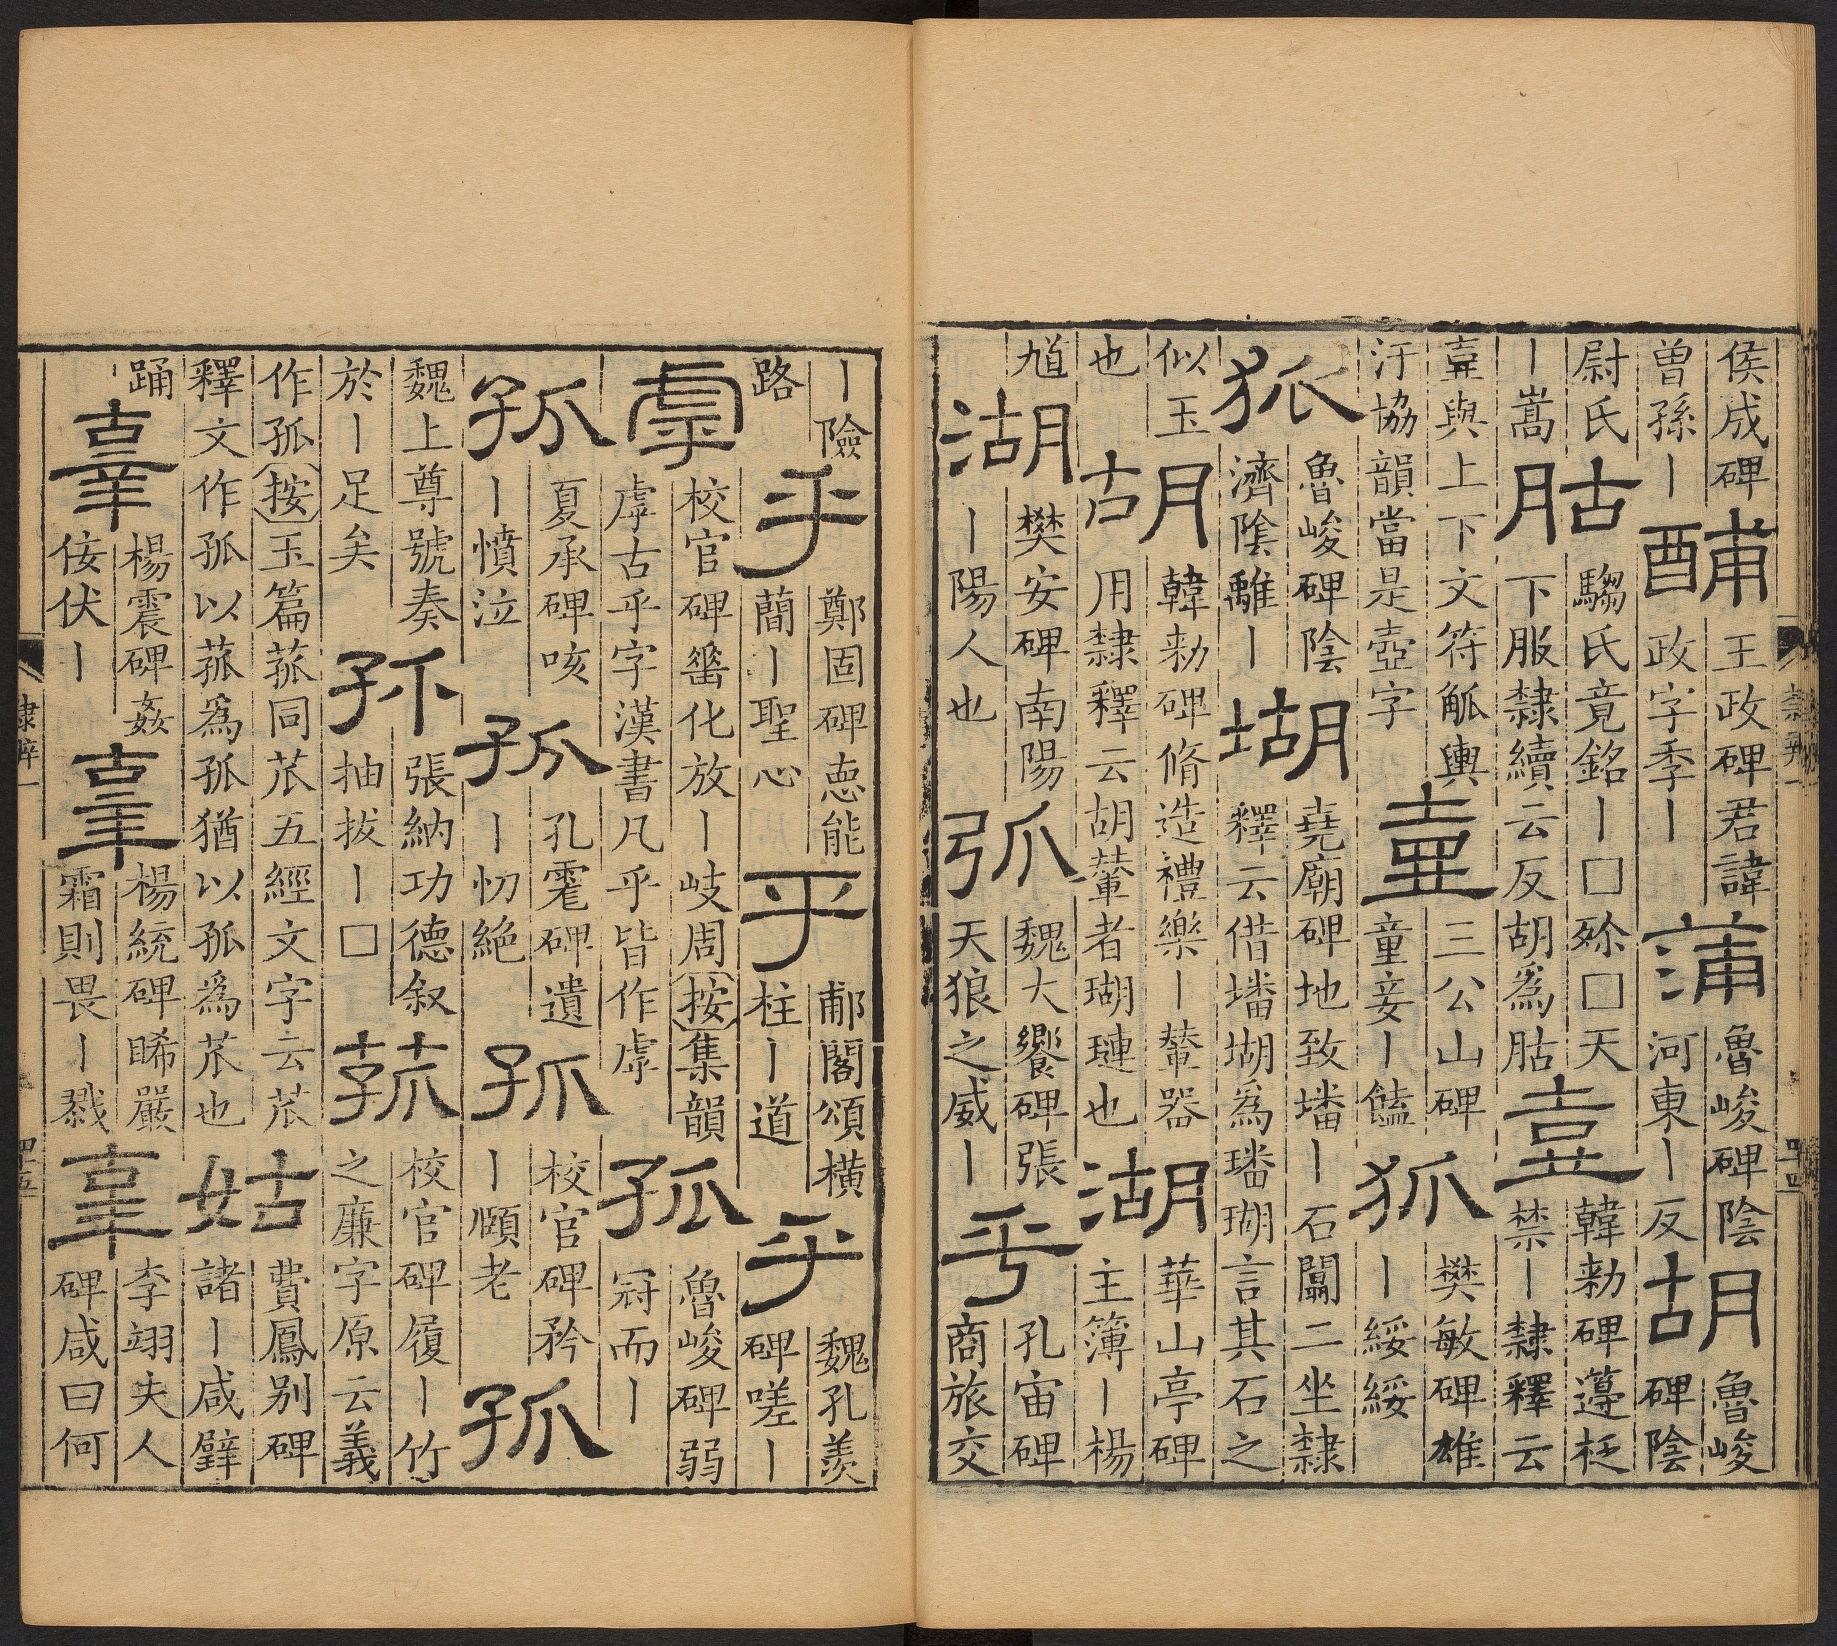 侯成碑曾孫丨酺王政碑君諱政字季丨蒲魯峻碑陰河東丨反胡魯峻碑陰
尉氏丨嵩胋騶氏竟銘丨□殄□天下服隸續云反胡爲胋壺韓勑碑遵柉禁丨隸釋云
壺與上下文符觚輿汙協韻當是壺字壺三公山碑童妾丨饁狐樊敏碑雄丨綏綏
狐魯峻碑陰濟陰離丨瑚堯廟碑地致墦丨石闕二坐隸釋云借墦瑚爲璠瑚言其石之
似玉也胡韓勑碑脩造禮樂丨輦器用隸釋云胡輦者瑚璉也湖華山亭碑主簿丨楊
馗湖樊安碑南陽丨陽人也弧魏大饗碑張天狼之威丨乎孔宙碑商旅交
隸辨一
四十四
丨險路乎鄭固碑恵能蕳丨聖心乎郙閣頌橫柱丨道乎魏孔羨碑嗟丨
虖校官碑畨化放丨岐周按集韻虖古乎字漢書凡乎皆作虖孤魯峻碑弱冠而丨
孤夏承碑咳丨憤泣孤孔雮碑遺丨忉絕孤校官碑矜丨頤老孤
魏上尊號奏於丨足矣孤張納功德叙抽拔丨□菰校官碑履丨竹之廉字原云義
作孤按玉篇菰同苽五經文字云苽釋文作孤以菰爲孤猶以孤爲苽也姑費鳳別碑諸丨咸躃
踊辜楊震碑姦佞伏丨辜楊統碑睎嚴霜則畏丨戮辜李翊夫人碑咸曰何
隸辨一
四十五